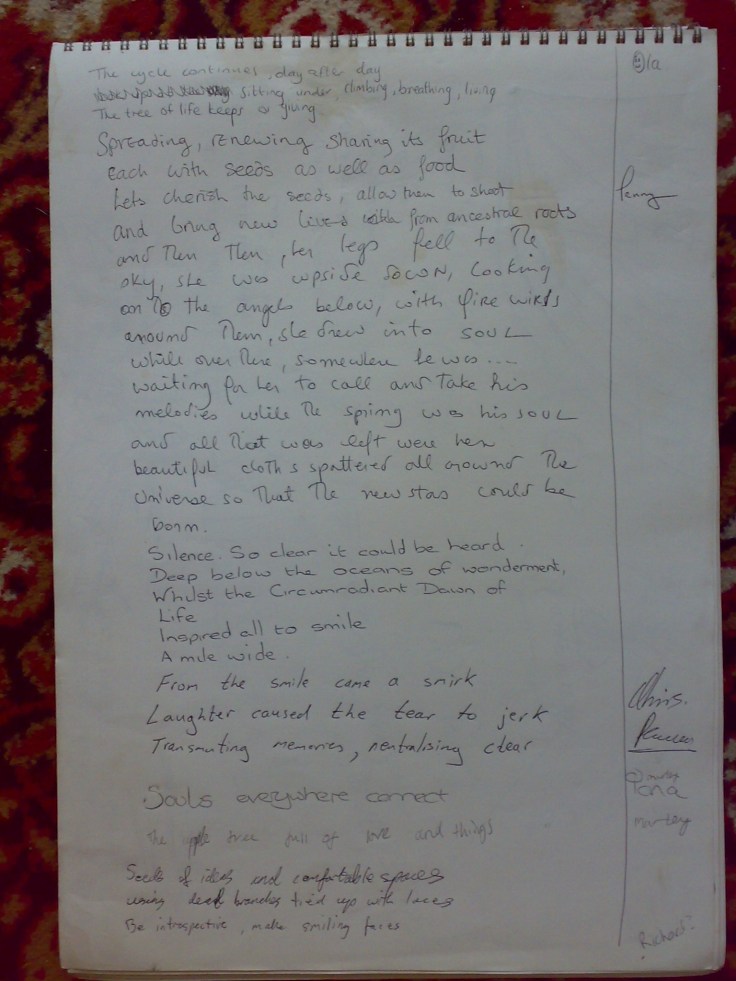 The cycle continues, day after day
sitting under, climbing, breathing, living
The tree of life keeps giving
Spreading, renewing sharing its fruit
each with seeds as well as food
Lets cherish the seeds, allow them to shoot
and bring new lives from ancestral roots
and Then Then, her legs fell to The
sky, she was upside down, looking
on to the angels below, with fire wings
around Them, she drew into soul
while over There, somewhere he was ...
waiting for her to call and Take his
melodies while The spring was his soul
and all That was left were her
beautiful cloths spattered all around The
Universe so That The new stas could be
born.
Silence. So clear it could be heard.
Deep below the oceans of wonderment,
Whilst the Circumradiant Dawn of
Life
Inspired all to smile
A mile wide.
From the smile came a smirk
Laughter caused the tear to jerk
Transmuting memories, neutralising clear
Souls everywhere connect
The apple tree full of love and things
Seeds of ideas and comfortable spaces
using dead branches tied up with laces
Be introspective, make smiling faces
Penny
Chris.
martey
Richard?